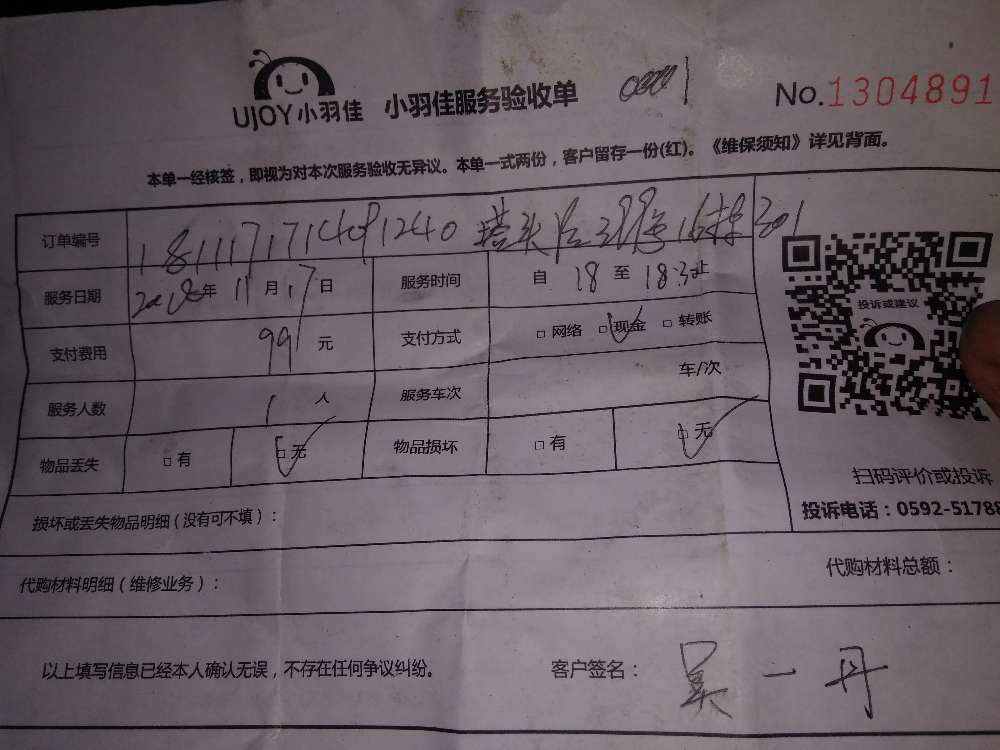 UJOY小羽佳 小羽佳服务验收单 No.1304891
本单一经核签，即视为对本次服务验收无异议。本单一式两份，客户留存一份(红)。《维保须知》详见背面。
订单编号 1811171714091240 16栋301
服务日期 2018年11月17日 服务时间 自 18 至 18:30止
支付费用 99元 支付方式 □网络 □现金 □转账
服务人数 1人 服务车次 车/次
物品丢失 □有 □无 物品损坏 □有 □无
投诉或建议
扫码评价或投诉
投诉电话：0592-51788
损坏或丢失物品明细（没有可不填）：
代购材料明细（维修业务）： 代购材料总额：
以上填写信息已经本人确认无误，不存在任何争议纠纷。 客户签名：吴一丹